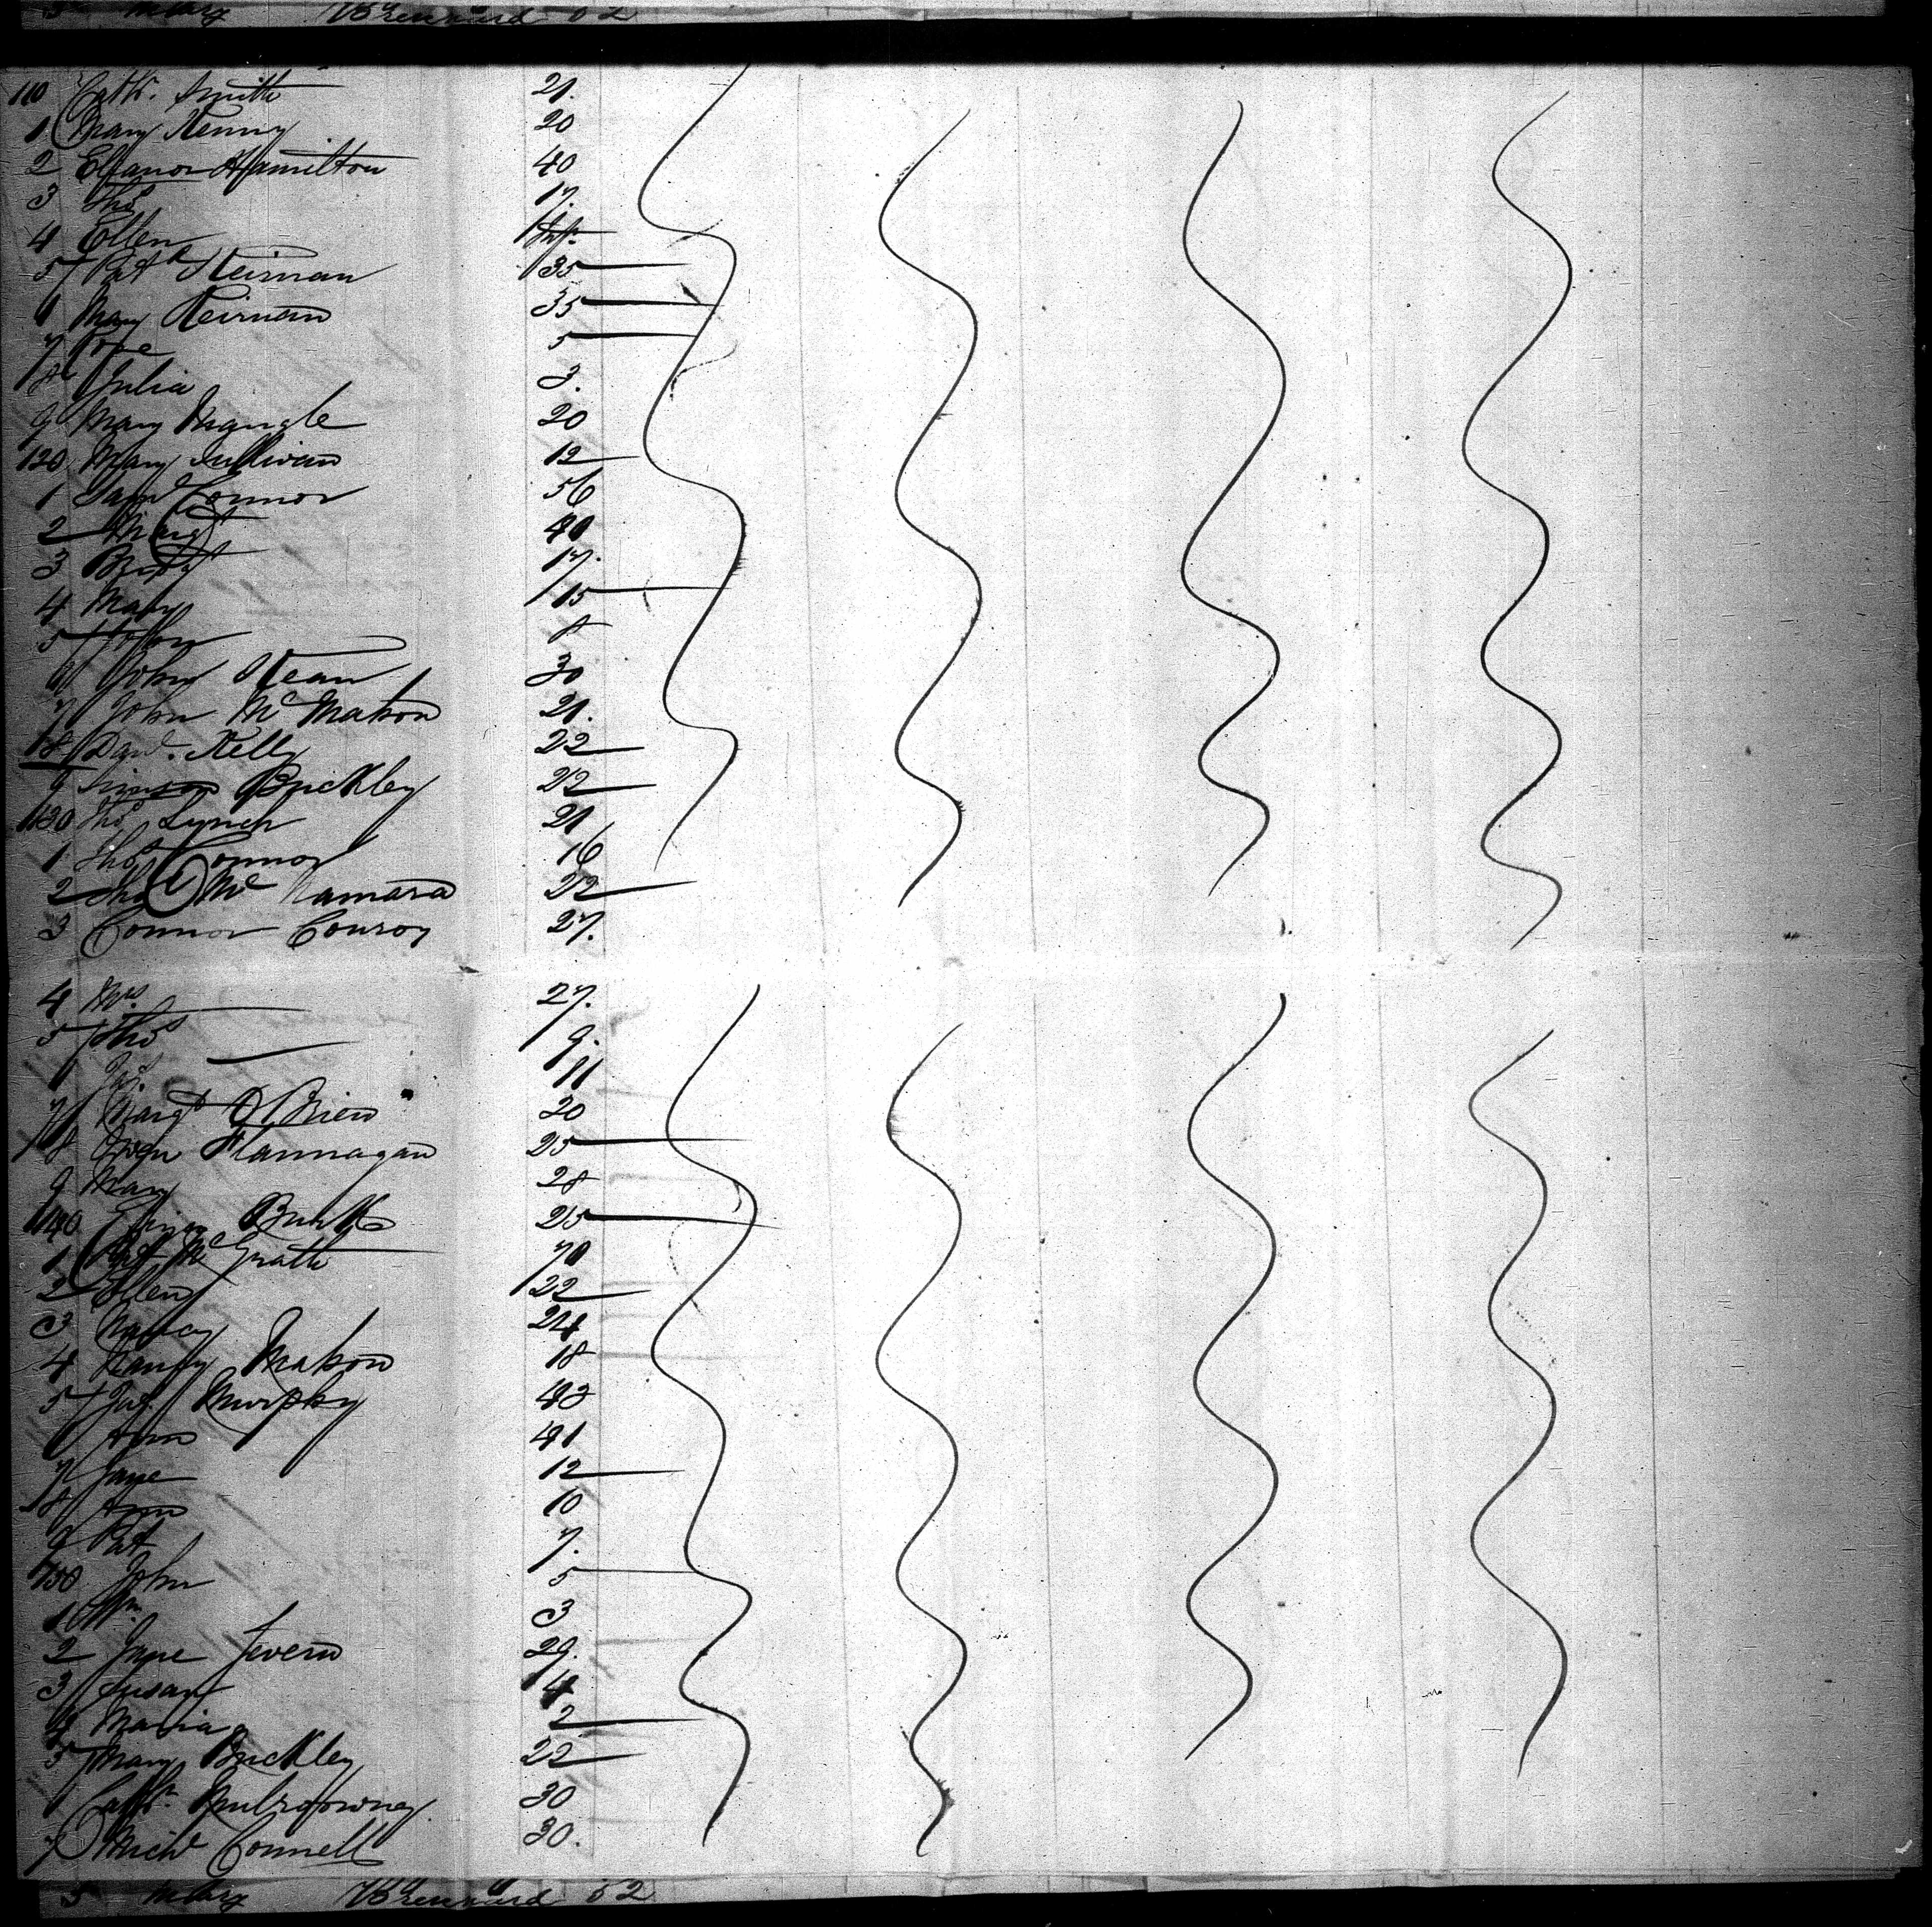 Mary Brennard 52
110 Cath. Smith 21.
1 Mary Kenny 20
2 Eleanor Hamilton 40
3 Thos 17.
4 Ellen
5 Patk Keirnan 35
6 Mary Keirnan 35
7 5
8 Julia 3.
9 Mary Nangle 20
120 Mary Sullivan 12
1 Saml Connor 56
2 Margt 40
3 Bridgt 17.
4 Mary 15
5 8
6 John Kean 30
7 John McMahon 21.
8 Danl. Kelly 22
9 Simson Buckley 22
130 Thos Lynch 21
1 Thos Connor 16
2 Thos McNamara 22
3 Connor Conroy 27.
4 Mrs 27.
5 Thos 9.
6 Jas. 11
7 Margt O'Brien 20
8 Owen Flannagan 25
9 Mary 28
140 Eliza Burk 25
1 Pat McGrath 70
2 Ellen 22
3 Nancy 24
4 Nancy Mahon 18
5 Jas. Murphy 43
6 Ann 41
7 Jane 12
8 Ann 10
9 Pat 7.
150 John 5
1 Wm 3
2 Jane Severn 29.
3 Susan 4
4 Maria 2
5 Mary Buckley 22
6 Cath. 30
7 Michl Connell 30.
5 Mary Brennard 52